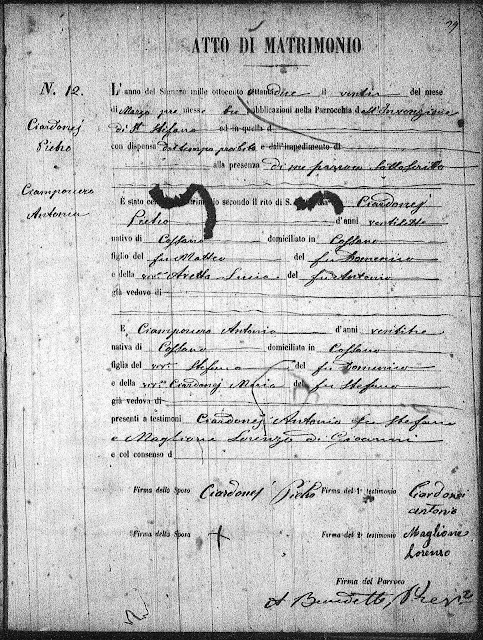 29
ATTO DI MATRIMONIO
N. 12.
Ciardonej
Pietro
Ciamponera
Antonia
L'anno del Signore mille ottocento ottantadue il venti del mese
di Marzo pre messe tre pubblicazioni nella Parrocchia dell'Invenzione
di St Stefano ed in quella di
con dispensa dal tempo proibito e dall'impedimento di
alla presenza di me parroco sottoscritto
È stato ce monio secondo il rito di S. Ciardonej
Pietro d'anni ventitto
nativo di Cossano domiciliato in Cossano
figlio del fu Matteo del fu Domenico
e della viv.te Avetta Lucia del fu Antonio
già vedovo di
E Ciamponera Antonia d'anni ventitre
nativa di Cossano domiciliata in Cossano
figlia del viv.te Stefano del fu Domenico
e della viv.te Ciardonej Maria del fu Stefano
già vedova di
presenti a testimoni Ciardonej Antonio fu Stefano
e Maglione Lorenzo di Gioanni
e col consenso d
Firma dello Sposo Ciardonej Pietro Firma del 1° testimonio Ciardonei
antonio
Firma della Sposa + Firma del 2° testimonio Maglione
Lorenzo
Firma del Parroco
Benedetto